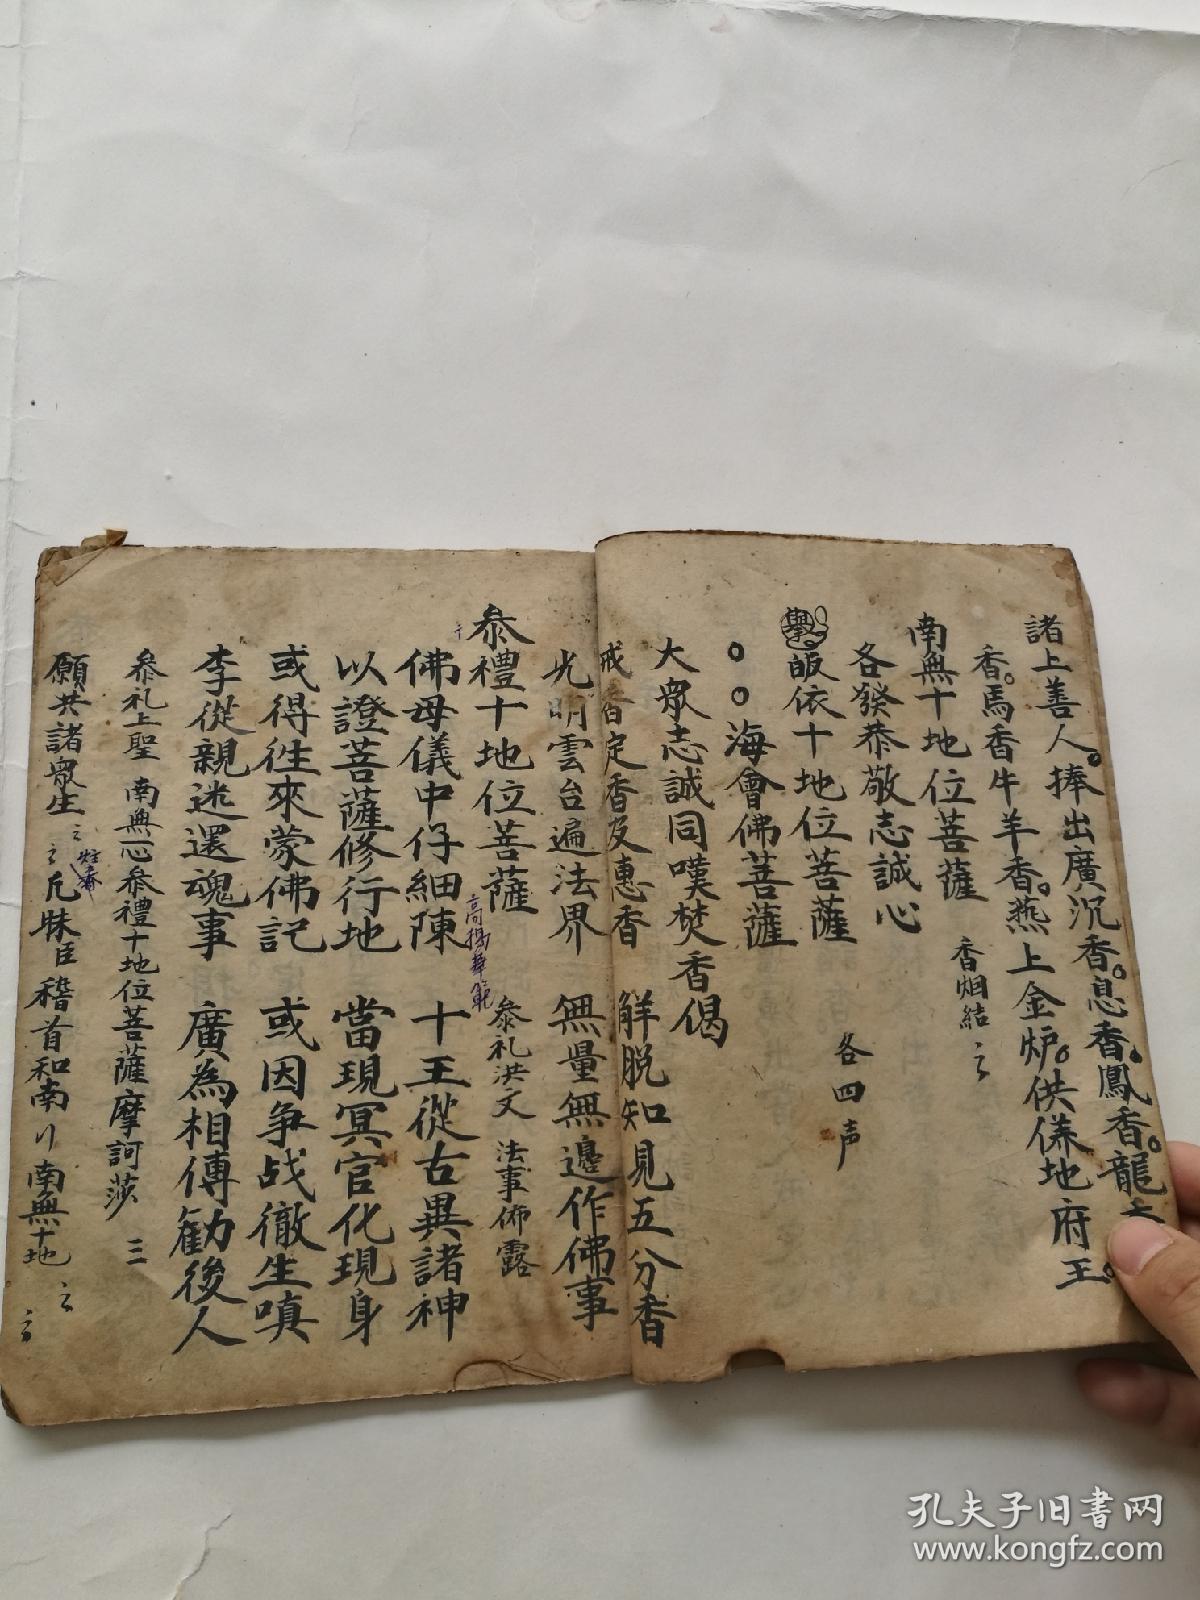 諸上善人捧出廣沉香息香鳳香龍
香馬香牛羊香燕上金炉供俵地府王
南無十地位菩薩 香烟結
各發恭敬志誠心
舉皈依十地位菩薩 各四声
海會佛菩薩
大眾志誠同嘆焚香偈
戒香定香及惠香 觧脱知見五分香
光明雲台遍法界 無量無邊作佛事
叅禮十地位菩薩 叅礼洪文 法事佈露
佛母儀中仔細陳 十王從古異諸神
以證菩薩修行地 當現冥官化現身
或得徃來蒙佛記 或因争战徹生嗔
李從親迷還魂事 廣為相傳勸後人
叅礼上聖 南無一心叅禮十地位菩薩摩訶莎 三
願共諸眾生 臣稽首和南 南無十地
孔夫子旧书网
www.kongfz.com